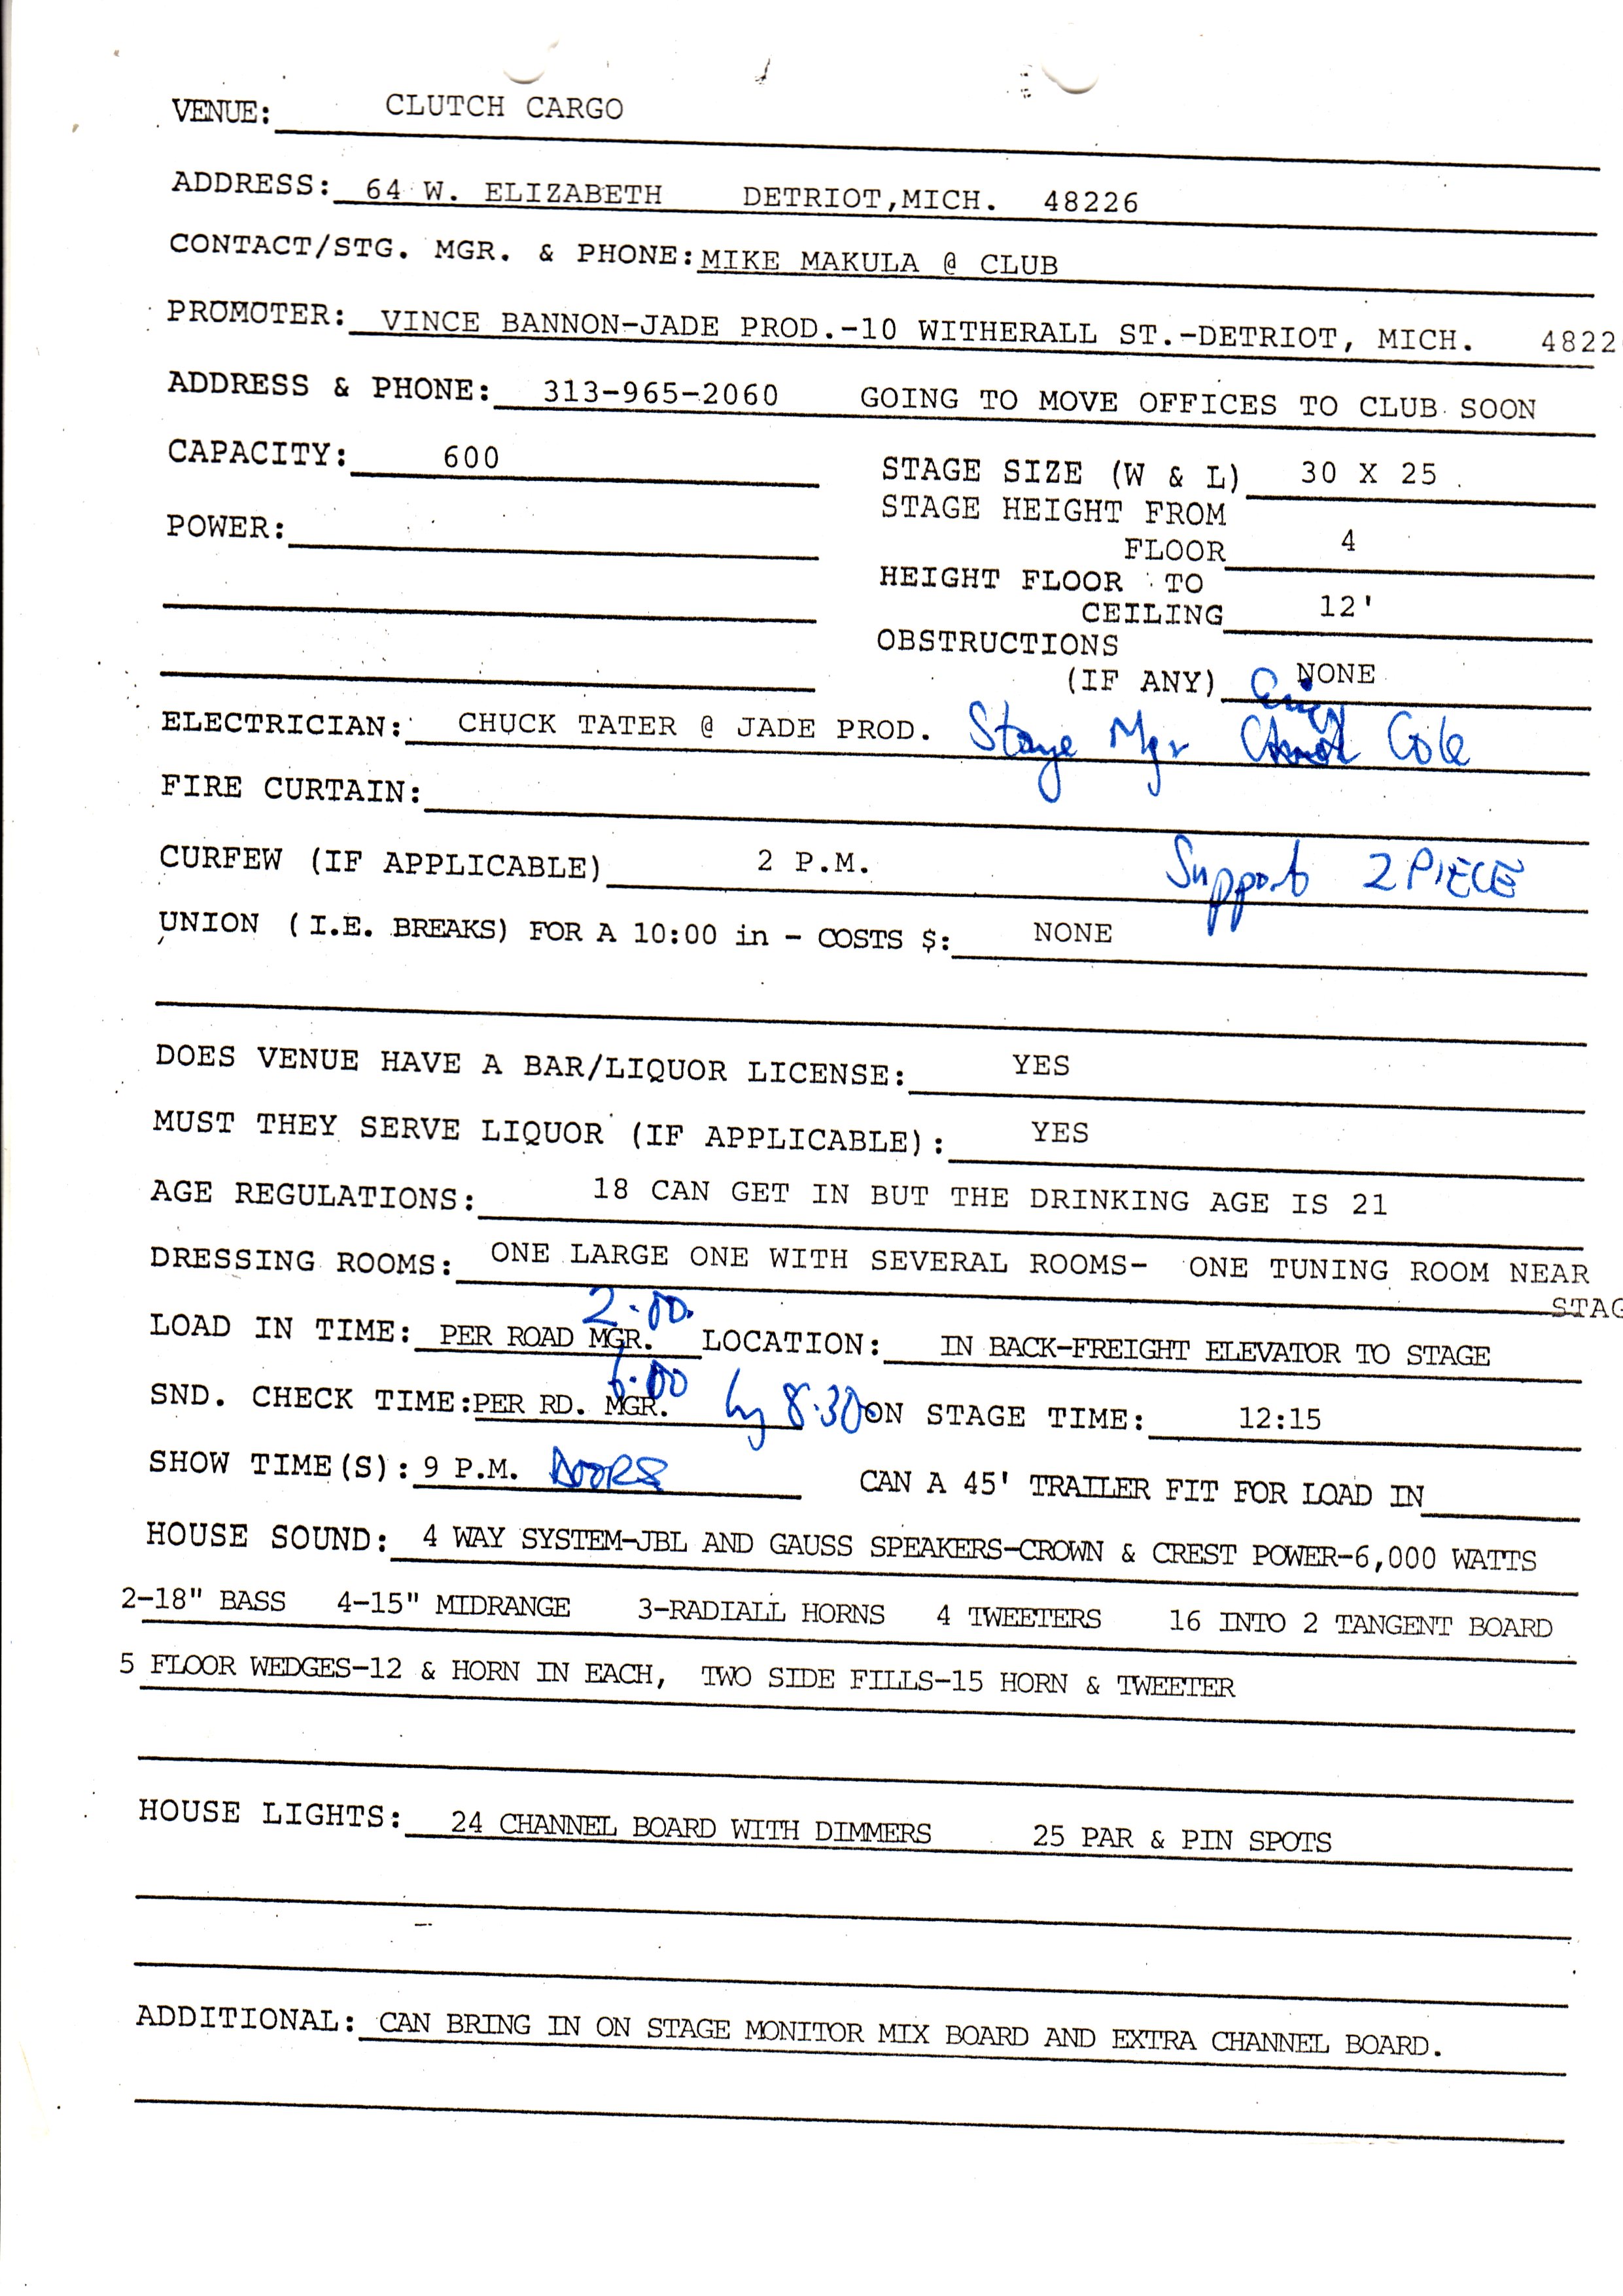 VENUE: CLUTCH CARGO
ADDRESS: 64 W. ELIZABETH DETRIOT,MICH. 48226
CONTACT/STG. MGR. & PHONE: MIKE MAKULA @ CLUB
PROMOTER: VINCE BANNON-JADE PROD.-10 WITHERALL ST.-DETRIOT, MICH. 4822
ADDRESS & PHONE: 313-965-2060 GOING TO MOVE OFFICES TO CLUB SOON
CAPACITY: 600 STAGE SIZE (W & L) 30 X 25
STAGE HEIGHT FROM
POWER: FLOOR 4
HEIGHT FLOOR TO
CEILING 12'
OBSTRUCTIONS
(IF ANY) NONE
ELECTRICIAN: CHUCK TATER @ JADE PROD. Stage Mgr Cole
FIRE CURTAIN:
CURFEW (IF APPLICABLE) 2 P.M. Support 2 PIECE
UNION (I.E. BREAKS) FOR A 10:00 in - COSTS $: NONE
DOES VENUE HAVE A BAR/LIQUOR LICENSE: YES
MUST THEY SERVE LIQUOR (IF APPLICABLE): YES
AGE REGULATIONS: 18 CAN GET IN BUT THE DRINKING AGE IS 21
DRESSING ROOMS: ONE LARGE ONE WITH SEVERAL ROOMS- ONE TUNING ROOM NEAR
STAG
2.00.
LOAD IN TIME: PER ROAD MGR. LOCATION: IN BACK-FREIGHT ELEVATOR TO STAGE
6.00
SND. CHECK TIME: PER RD. MGR. by 8.30 ON STAGE TIME: 12:15
SHOW TIME(S): 9 P.M. DOORS CAN A 45' TRAILER FIT FOR LOAD IN
HOUSE SOUND: 4 WAY SYSTEM-JBL AND GAUSS SPEAKERS-CROWN & CREST POWER-6,000 WATTS
2-18" BASS 4-15" MIDRANGE 3-RADIALL HORNS 4 TWEETERS 16 INTO 2 TANGENT BOARD
5 FLOOR WEDGES-12 & HORN IN EACH, TWO SIDE FILLS-15 HORN & TWEETER
HOUSE LIGHTS: 24 CHANNEL BOARD WITH DIMMERS 25 PAR & PIN SPOTS
ADDITIONAL: CAN BRING IN ON STAGE MONITOR MIX BOARD AND EXTRA CHANNEL BOARD.